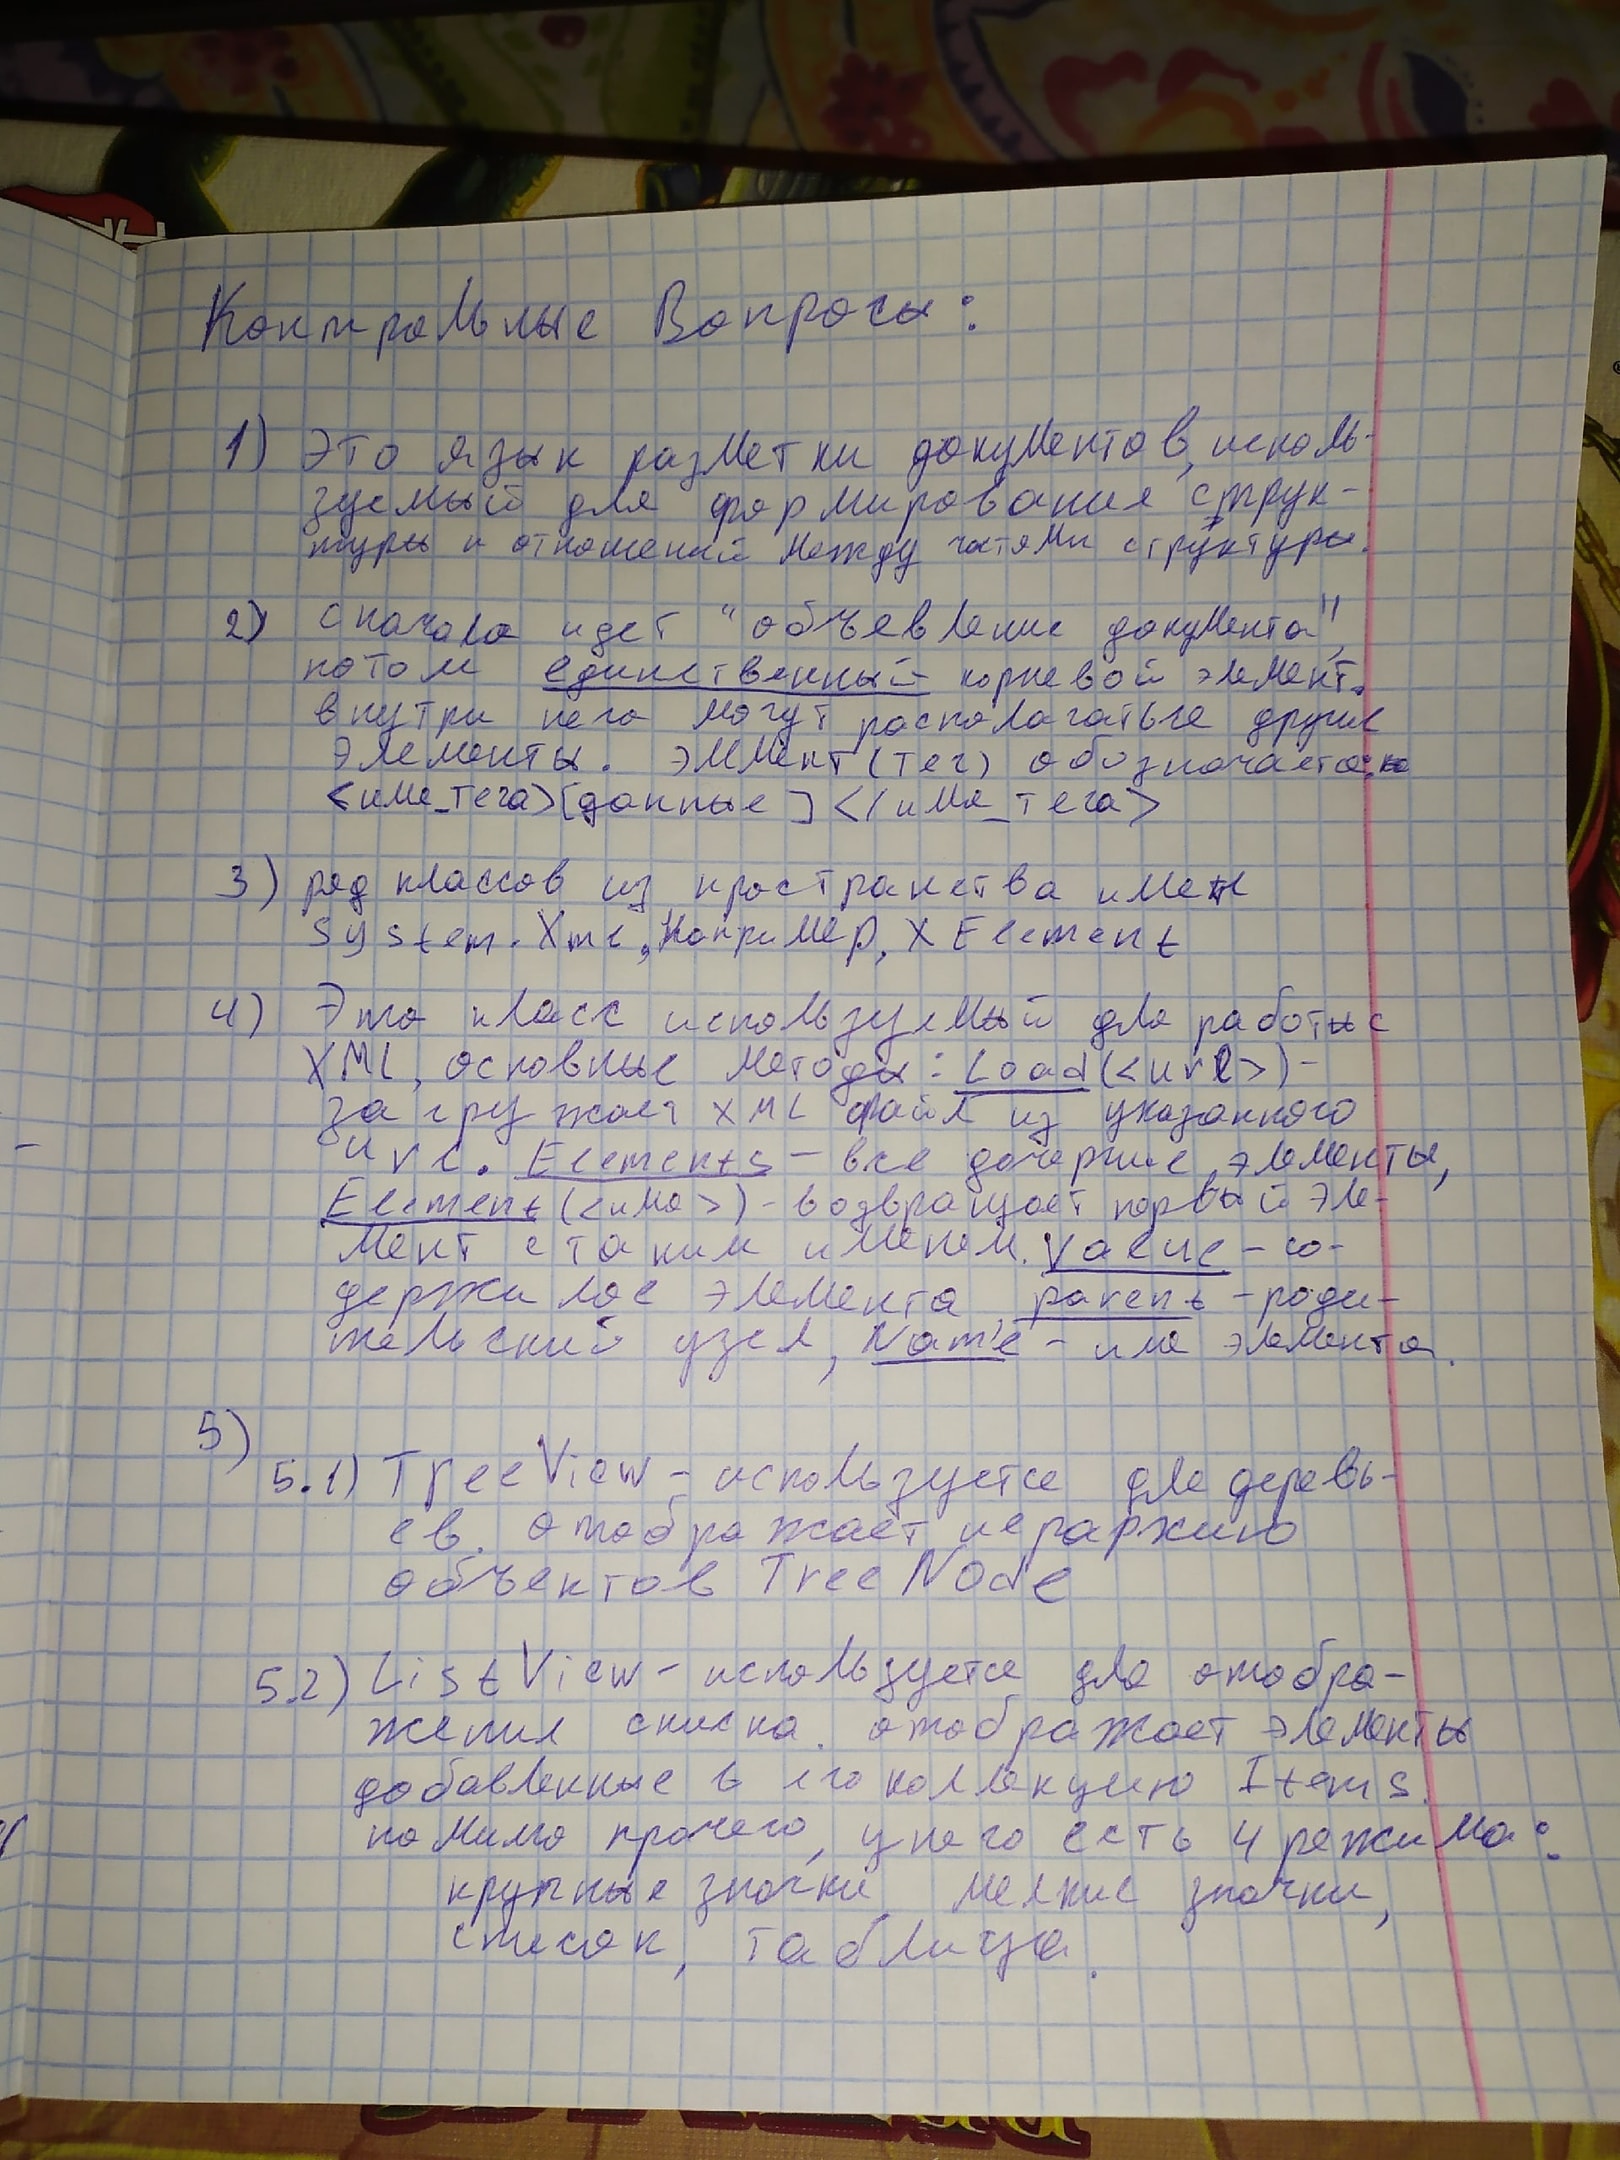 Контрольные Вопросы:
1) Это язык разметки документов, исполь-
зуемый для формирования струк-
туры и отношений между частями структуры.
2) сначала идет "объевление документа",
потом единственный корневой элемент.
внутри него могут распологаться другие
элементы. элемент (тег) обозначается
<имя_тега>[данные]</имя_тега>
3) ряд классов из пространства имен
System.Xml, Например, XElement
4) Это класс используемый для работы с
XML, основные методы: Load(<url>)-
загружает XML файл из указанного
url. Elements - все дочерние элементы,
Element(<имя>) - возвращает первый эле-
мент с таким именем. Value - со-
держимое элемента, parent - роди-
тельский узел, Name - имя элемента.
5)
5.1) TreeView - используется для деревь-
ев. отображает иерархию
объектов TreeNode
5.2) ListView - используется для отобра-
жения списка. отображает элементы
добавленные в его коллекцию Items.
помимо прочего, у него есть 4 режима:
крупные значки, мелкие значки,
список, таблица.